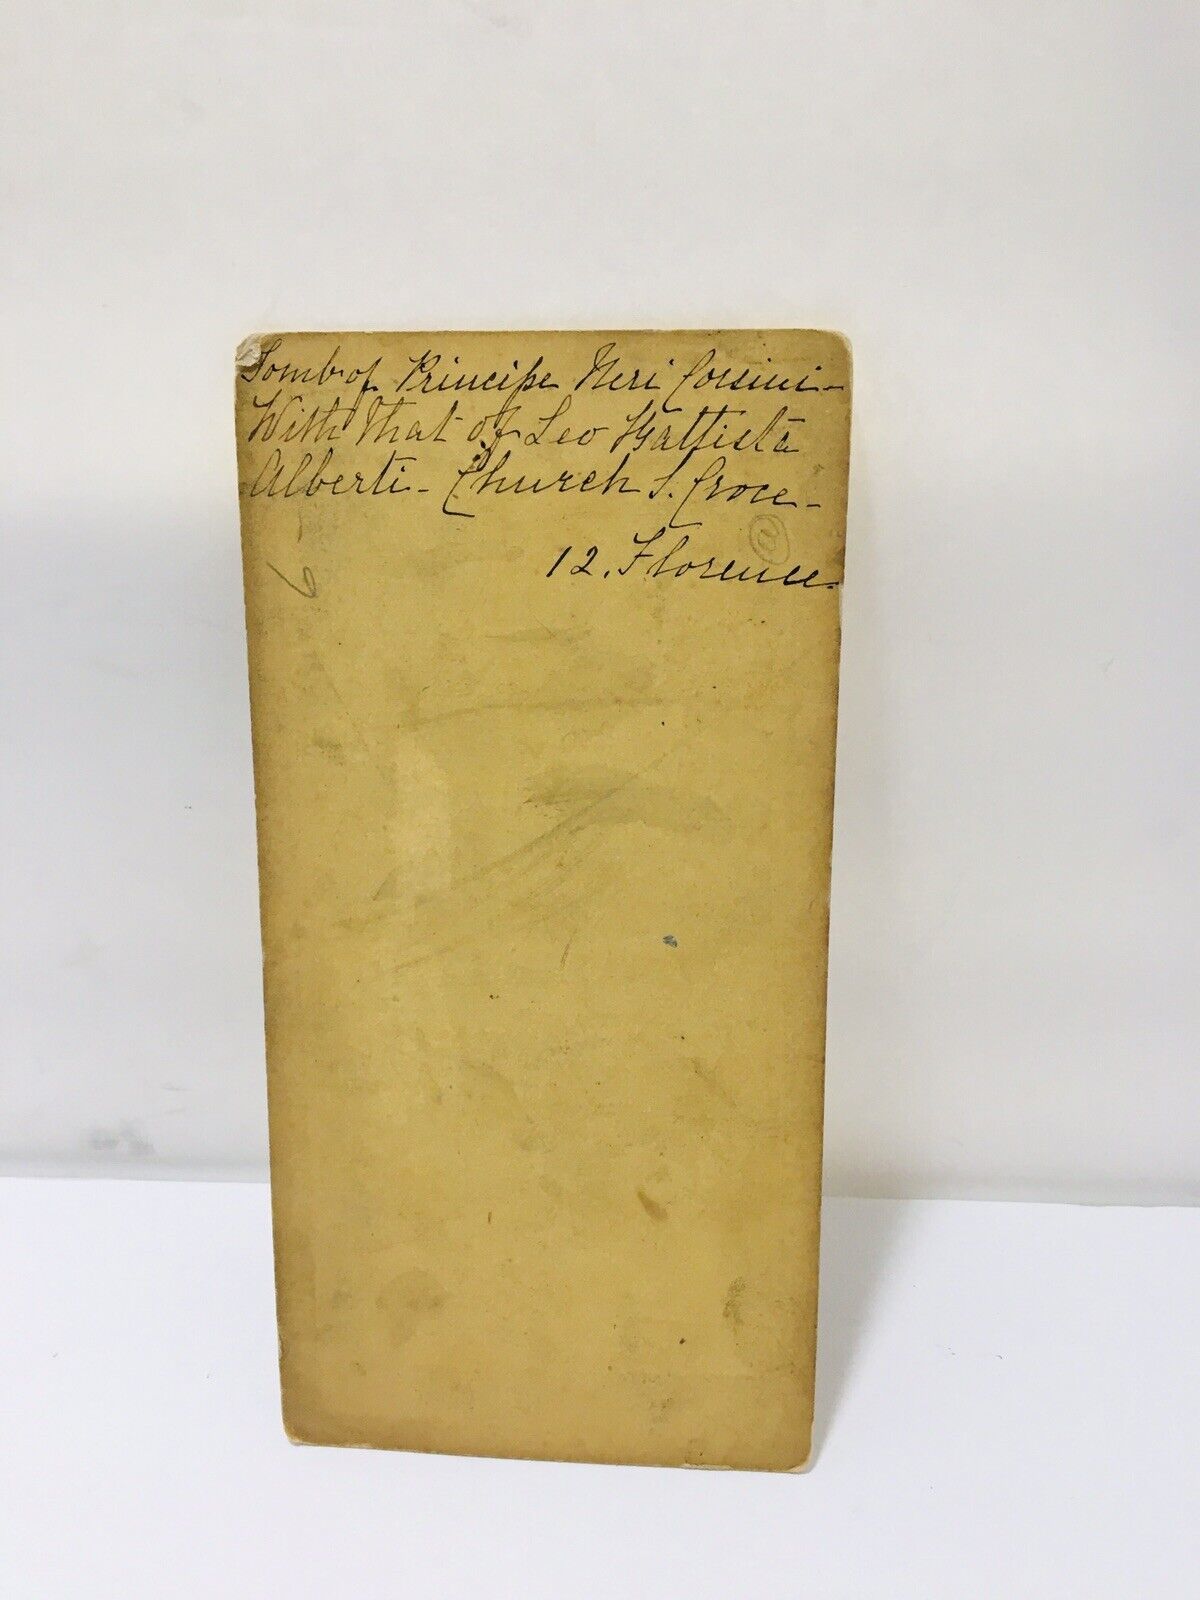 Tomb of Principe Neri Corsini-
With that of Leo Battista
Alberti- Church S. Croce-
a
12. Florence.
6